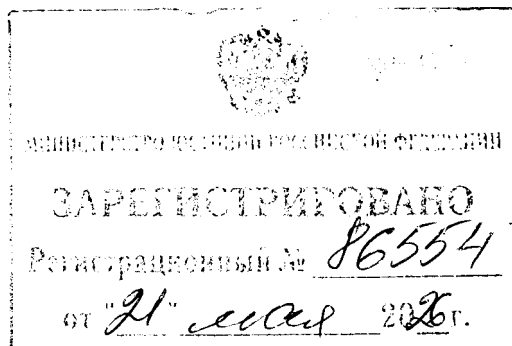 МИНИСТЕРСТВО ЮСТИЦИИ РОССИЙСКОЙ ФЕДЕРАЦИИ
ЗАРЕГИСТРИРОВАНО
Регистрационный № 86554
от "21" мая 2026 г.